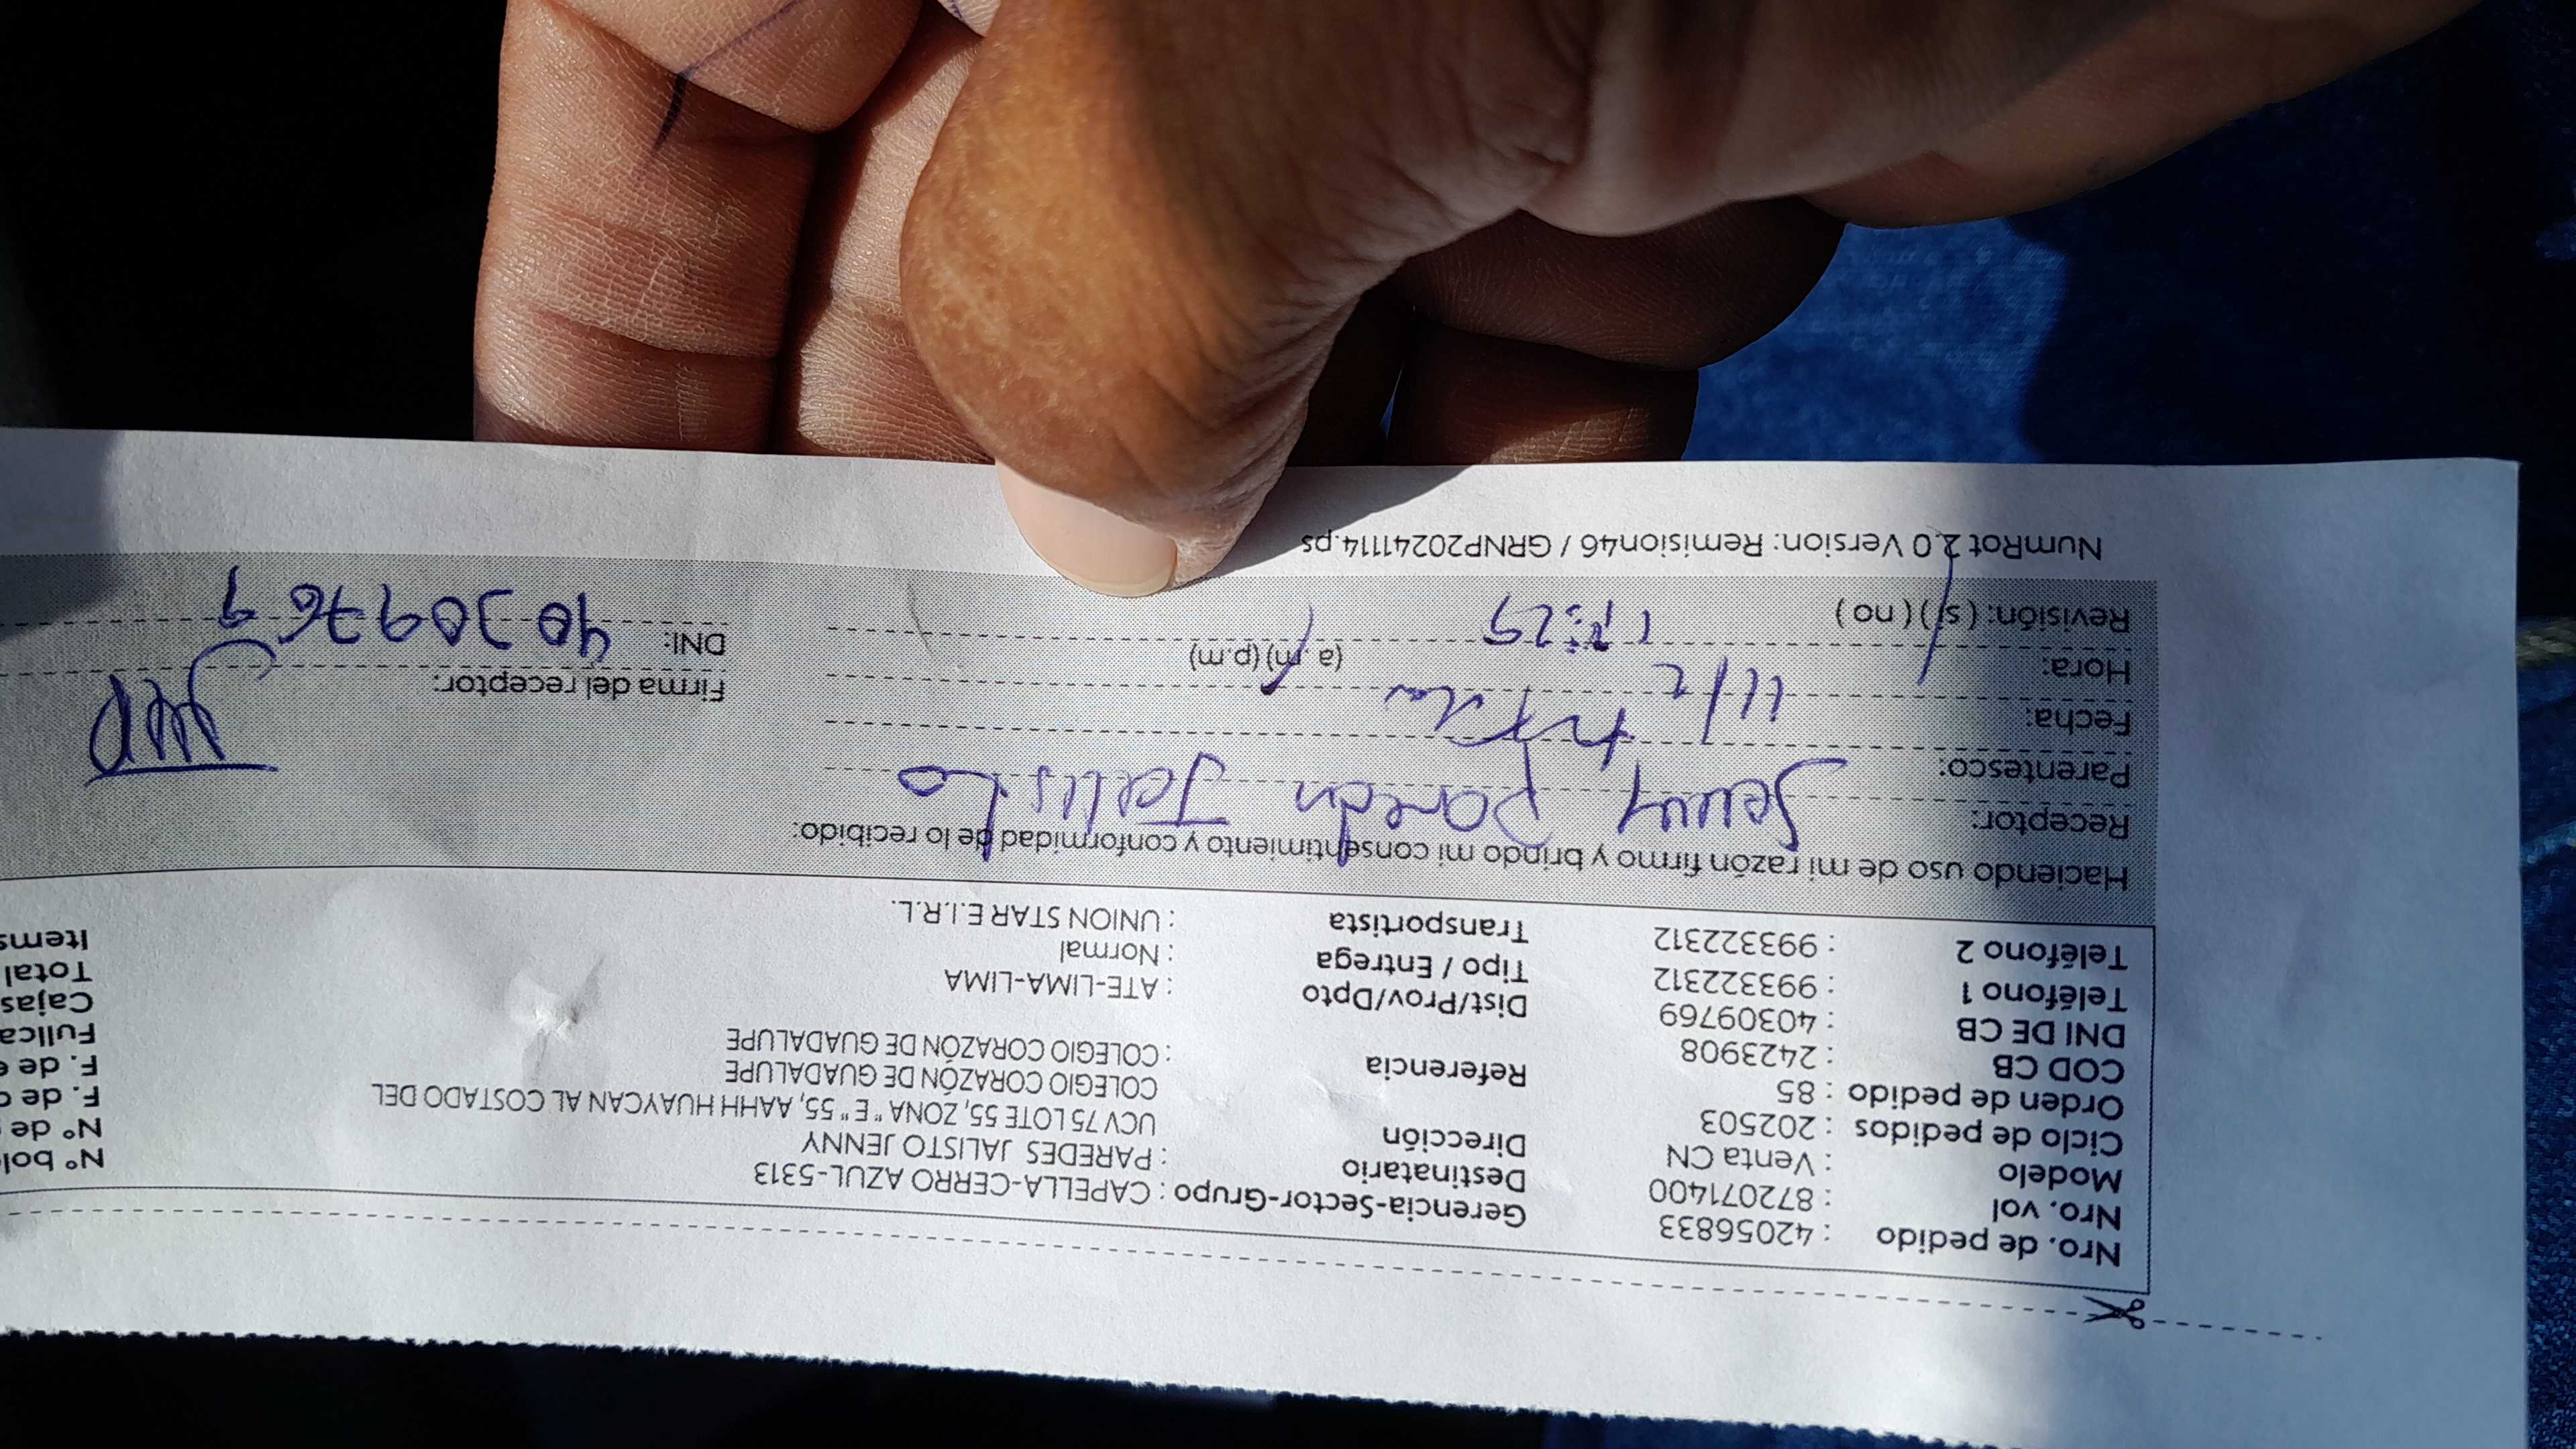 Nro. de pedido : 42056833
Nro. vol : 872071400
Modelo : Venta CN
Ciclo de pedidos : 202503
Orden de pedido : 85
COD CB : 2423908
DNI DE CB : 40309769
Teléfono 1 : 993322312
Teléfono 2 : 993322312
Gerencia-Sector-Grupo : CAPELLA-CERRO AZUL-5313
Destinatario : PAREDES JALISTO JENNY
Dirección UCV 75 LOTE 55, ZONA "E" 55, AAHH HUAYCAN AL COSTADO DEL
COLEGIO CORAZÓN DE GUADALUPE
Referencia : COLEGIO CORAZÓN DE GUADALUPE
Dist/Prov/Dpto : ATE-LIMA-LIMA
Tipo / Entrega : Normal
Transportista : UNION STAR E.I.R.L.
Nº bol
Nº de
F. de
F. de
Fullca
Cajas
Total
Items
Haciendo uso de mi razón firmo y brindo mi consentimiento y conformidad de lo recibido:
Receptor: Jenny Jalisto
Parentesco:
Fecha: 11/2
Hora: (a.m) (p.m)
Revisión: (si) (no)
Firma del receptor:
DNI: 40309769
NumRot 2.0 Version: Remision46 / GRNP20241114.ps